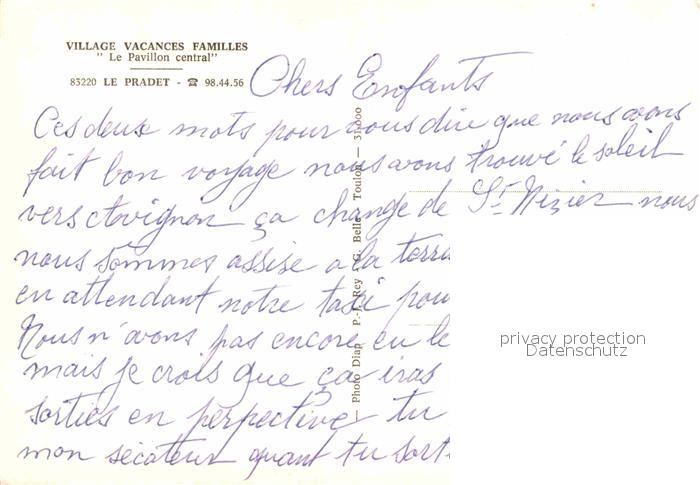 VILLAGE VACANCES FAMILLES
" Le Pavillon central"
83220 LE PRADET - ☎ 98.44.56
Chers Enfants
Ces deux mots pour vous dire que nous avons
fait bon voyage nous avons trouvé le soleil
vers Avignon ça change de St Nizier nous
nous sommes assise a la terra
en attendant notre taxi pou
Nous n'avons pas encore eu le
mais je crois que ça iras
sorties en perpective tu
mon sécateur quant tu sort
— Photo Diap P.-J. Rey G. Belle Toulon — 31.000
privacy protection
Datenschutz